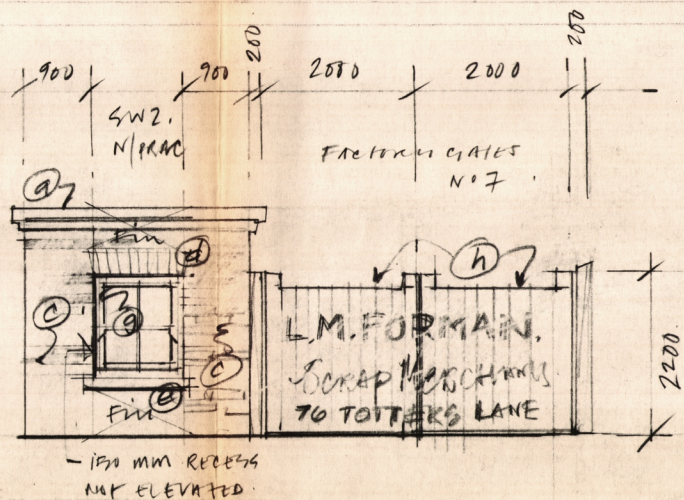 900
900
200
2000
2000
200
SW2.
N/PRAC
FACTORY GATES
No 7.
a
Fill
d
h
c
g
L.M. FORMAN.
c
SCRAP MERCHANT
2200
e
76 TOTTERS LANE
Fill
- 150 MM RECESS
NOT ELEVATED.